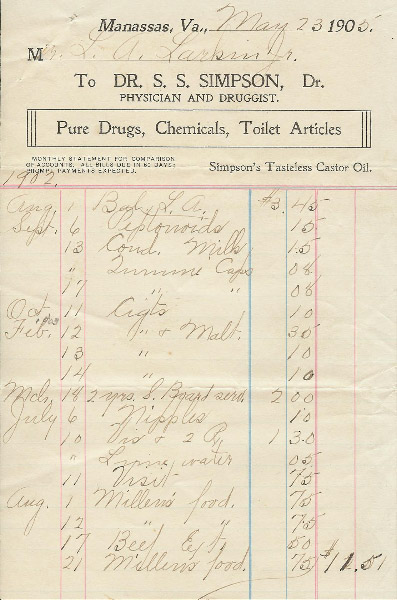 Manassas, Va., May 23 1905.
Mr. L. A. Larkin Jr.
To DR. S. S. SIMPSON, Dr.
PHYSICIAN AND DRUGGIST.
Pure Drugs, Chemicals, Toilet Articles
MONTHLY STATEMENT FOR COMPARISON
OF ACCOUNTS. ALL BILLS DUE IN 60 DAYS:
PROMPT PAYMENTS EXPECTED.
Simpson's Tasteless Castor Oil.
1902.
Aug 1 Bal. L. A. $3.45
Sept. 6 Peptonoids 15
13 Cond. Milk 15
" Quinine Caps 08
17 " " 08
Oct. 11 Cigts 10
Feb. 1903 12 " & Malt. 35
13 " 10
14 " 10
Mch. 18 2 yrs. S. 2 00
July 6 Nipples 10
10 Vis & 2 Rx 1 30
" Lime water 05
11 Visit 75
Aug. 1 Mellen's food. 75
12 " " 75
17 Beef Ext, 50
21 Mellen's food. 75 $11.51